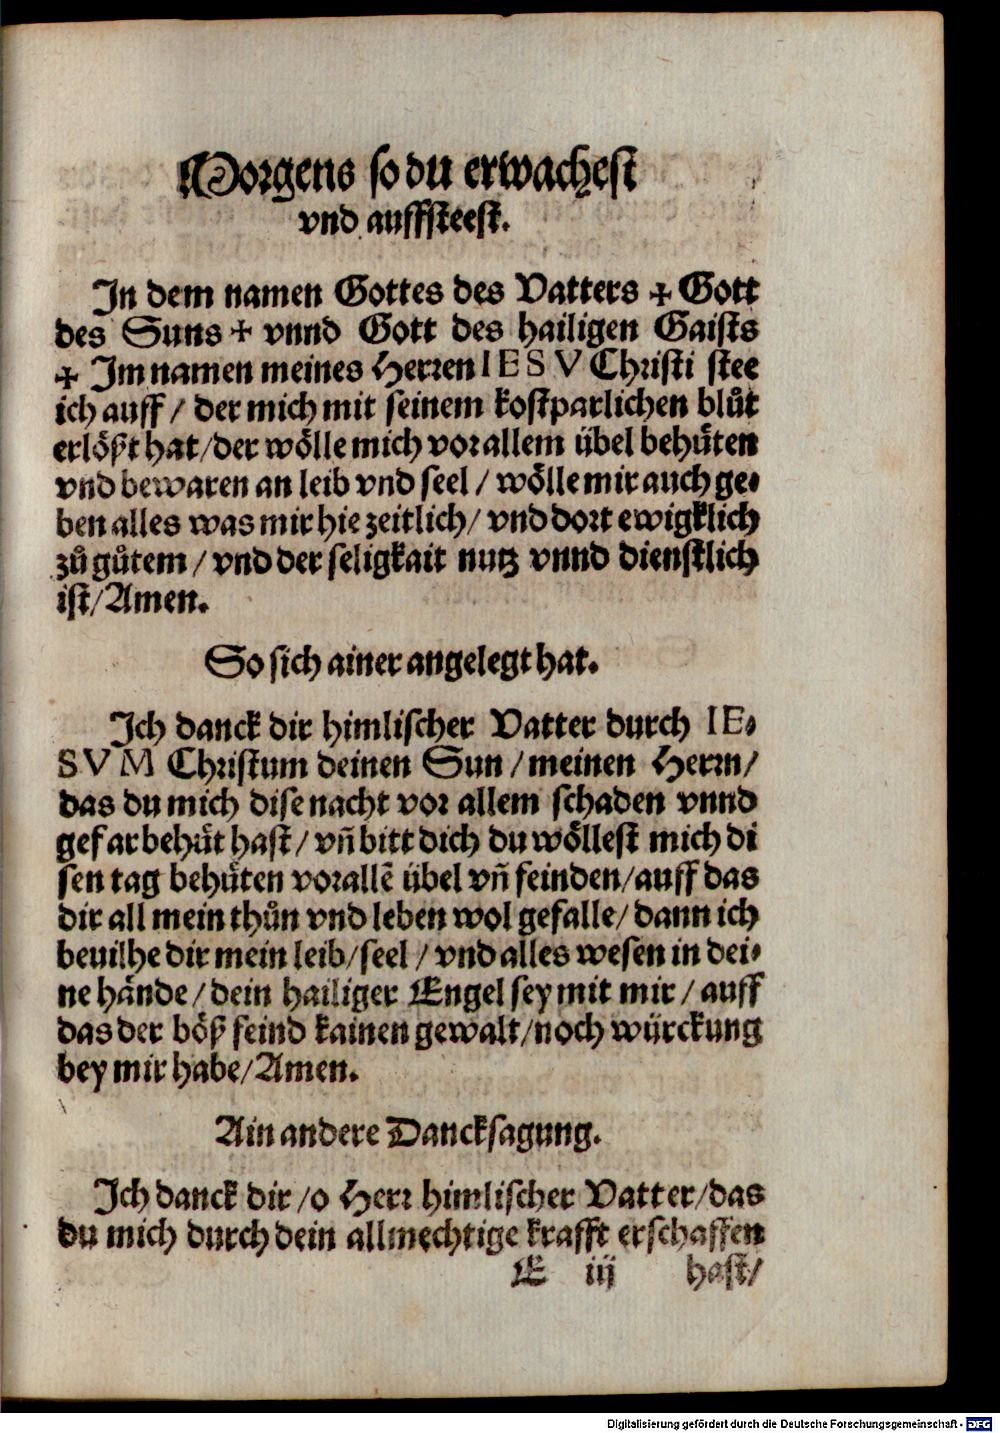 Morgens so du erwachest
vnd auffsteest.
In dem namen Gottes des Vatters ✠ Gott
des Suns ✠ vnnd Gott des hailigen Gaists
✠ Im namen meines Herren IESV Christi stee
ich auff / der mich mit seinem kostparlichen blůt
erlößt hat/der wölle mich vor allem übel behüten
vnd bewaren an leib vnd seel / wölle mir auch ge⸗
ben alles was mir hie zeitlich/ vnd dort ewigklich
zů gůtem / vnd der seligkait nutz vnnd dienstlich
ist/Amen.
So sich ainer angelegt hat.
Ich danck dir himlischer Vatter durch IE⸗
SVM Christum deinen Sun / meinen Herrn/
das du mich dise nacht vor allem schaden vnnd
gefar behüt hast/ vñ bitt dich du wöllest mich di
sen tag behüten vor allẽ übel vñ feinden/auff das
dir all mein thůn vnd leben wol gefalle/ dann ich
beuilhe dir mein leib/seel / vnd alles wesen in dei⸗
ne hände/ dein hailiger Engel sey mit mir / auff
das der böß feind kainen gewalt/noch würckung
bey mir habe/Amen.
Ain andere Dancksagung.
Ich danck dir /o Herr himlischer Vatter/das
du mich durch dein allmechtige krafft erschaffen
E iij hast/
Digitalisierung gefördert durch die Deutsche Forschungsgemeinschaft - DFG